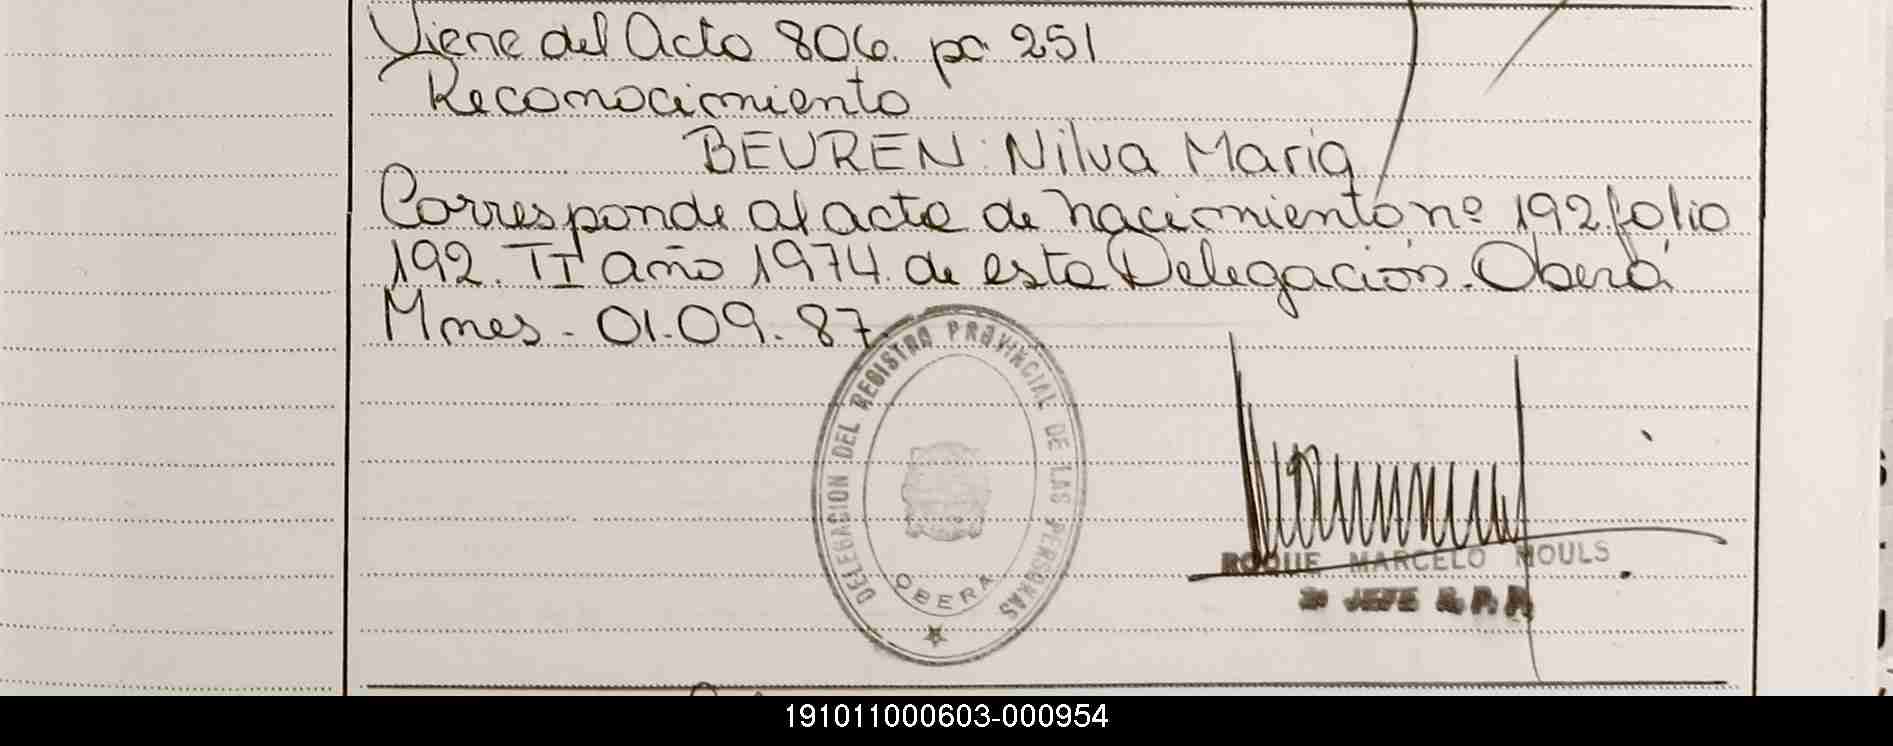 Viene del Acta 806. pa 251
Reconocimiento
BEUREN: Nilva Maria
Corresponde al acta de nacimiento nº 192 folio
192. TI año 1974. de esta Delegación. Oberá
Mnes - 01.09.87.
DELEGACION DEL REGISTRO PROVINCIAL DE LAS PERSONAS
OBERA
ROQUE MARCELO MOULS
2º JEFE R.P.P.
191011000603-000954